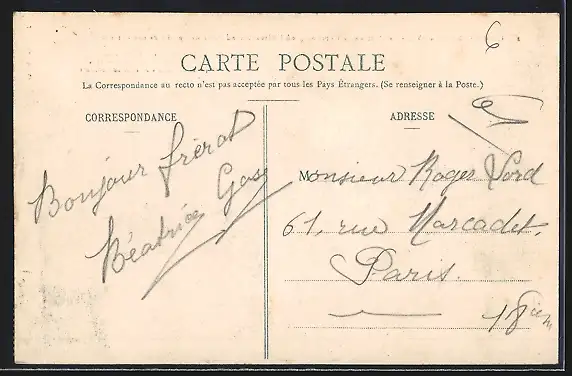 6
CARTE POSTALE
La Correspondance au recto n'est pas acceptée par tous les Pays Étrangers. (Se renseigner à la Poste.)
CORRESPONDANCE
Bonjour frérot
Béatrice Gas
ADRESSE
Monsieur Roger Nord
61, rue Marcadet.
Paris.
18em